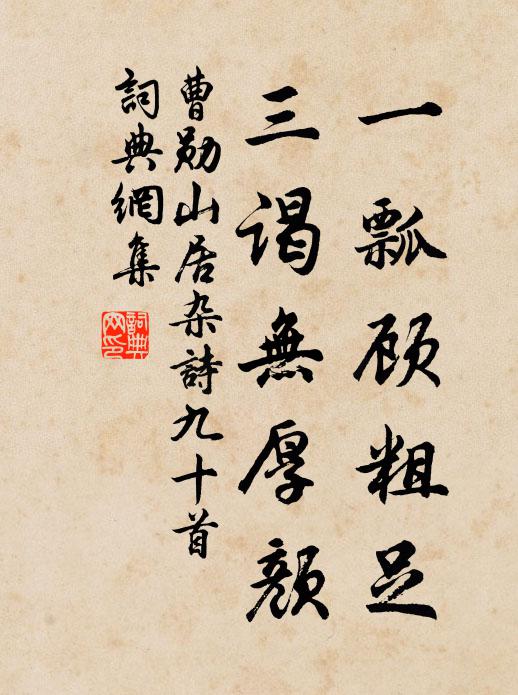 一瓢顾粗足
三谒無厚颜
曹勋山居杂詩九十首
詞典網集
詞典
网印